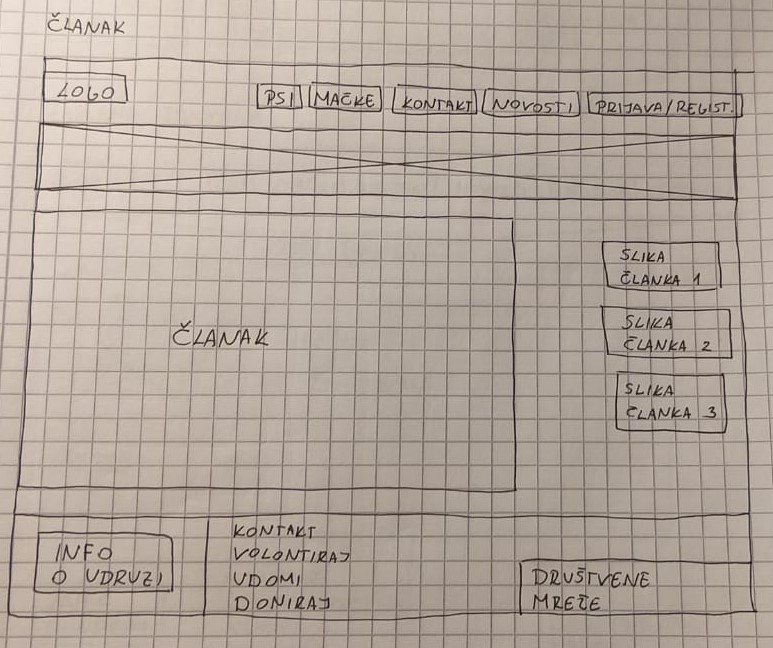 ČLANAK
LOGO
PSI
MAČKE
KONTAKT
NOVOSTI
PRIJAVA/REGIST.
ČLANAK
SLIKA
ČLANKA 1
SLIKA
ČLANKA 2
SLIKA
ČLANKA 3
INFO
O UDRUZI
KONTAKT
VOLONTIRAJ
UDOMI
DONIRAJ
DRUŠTVENE
MREŽE